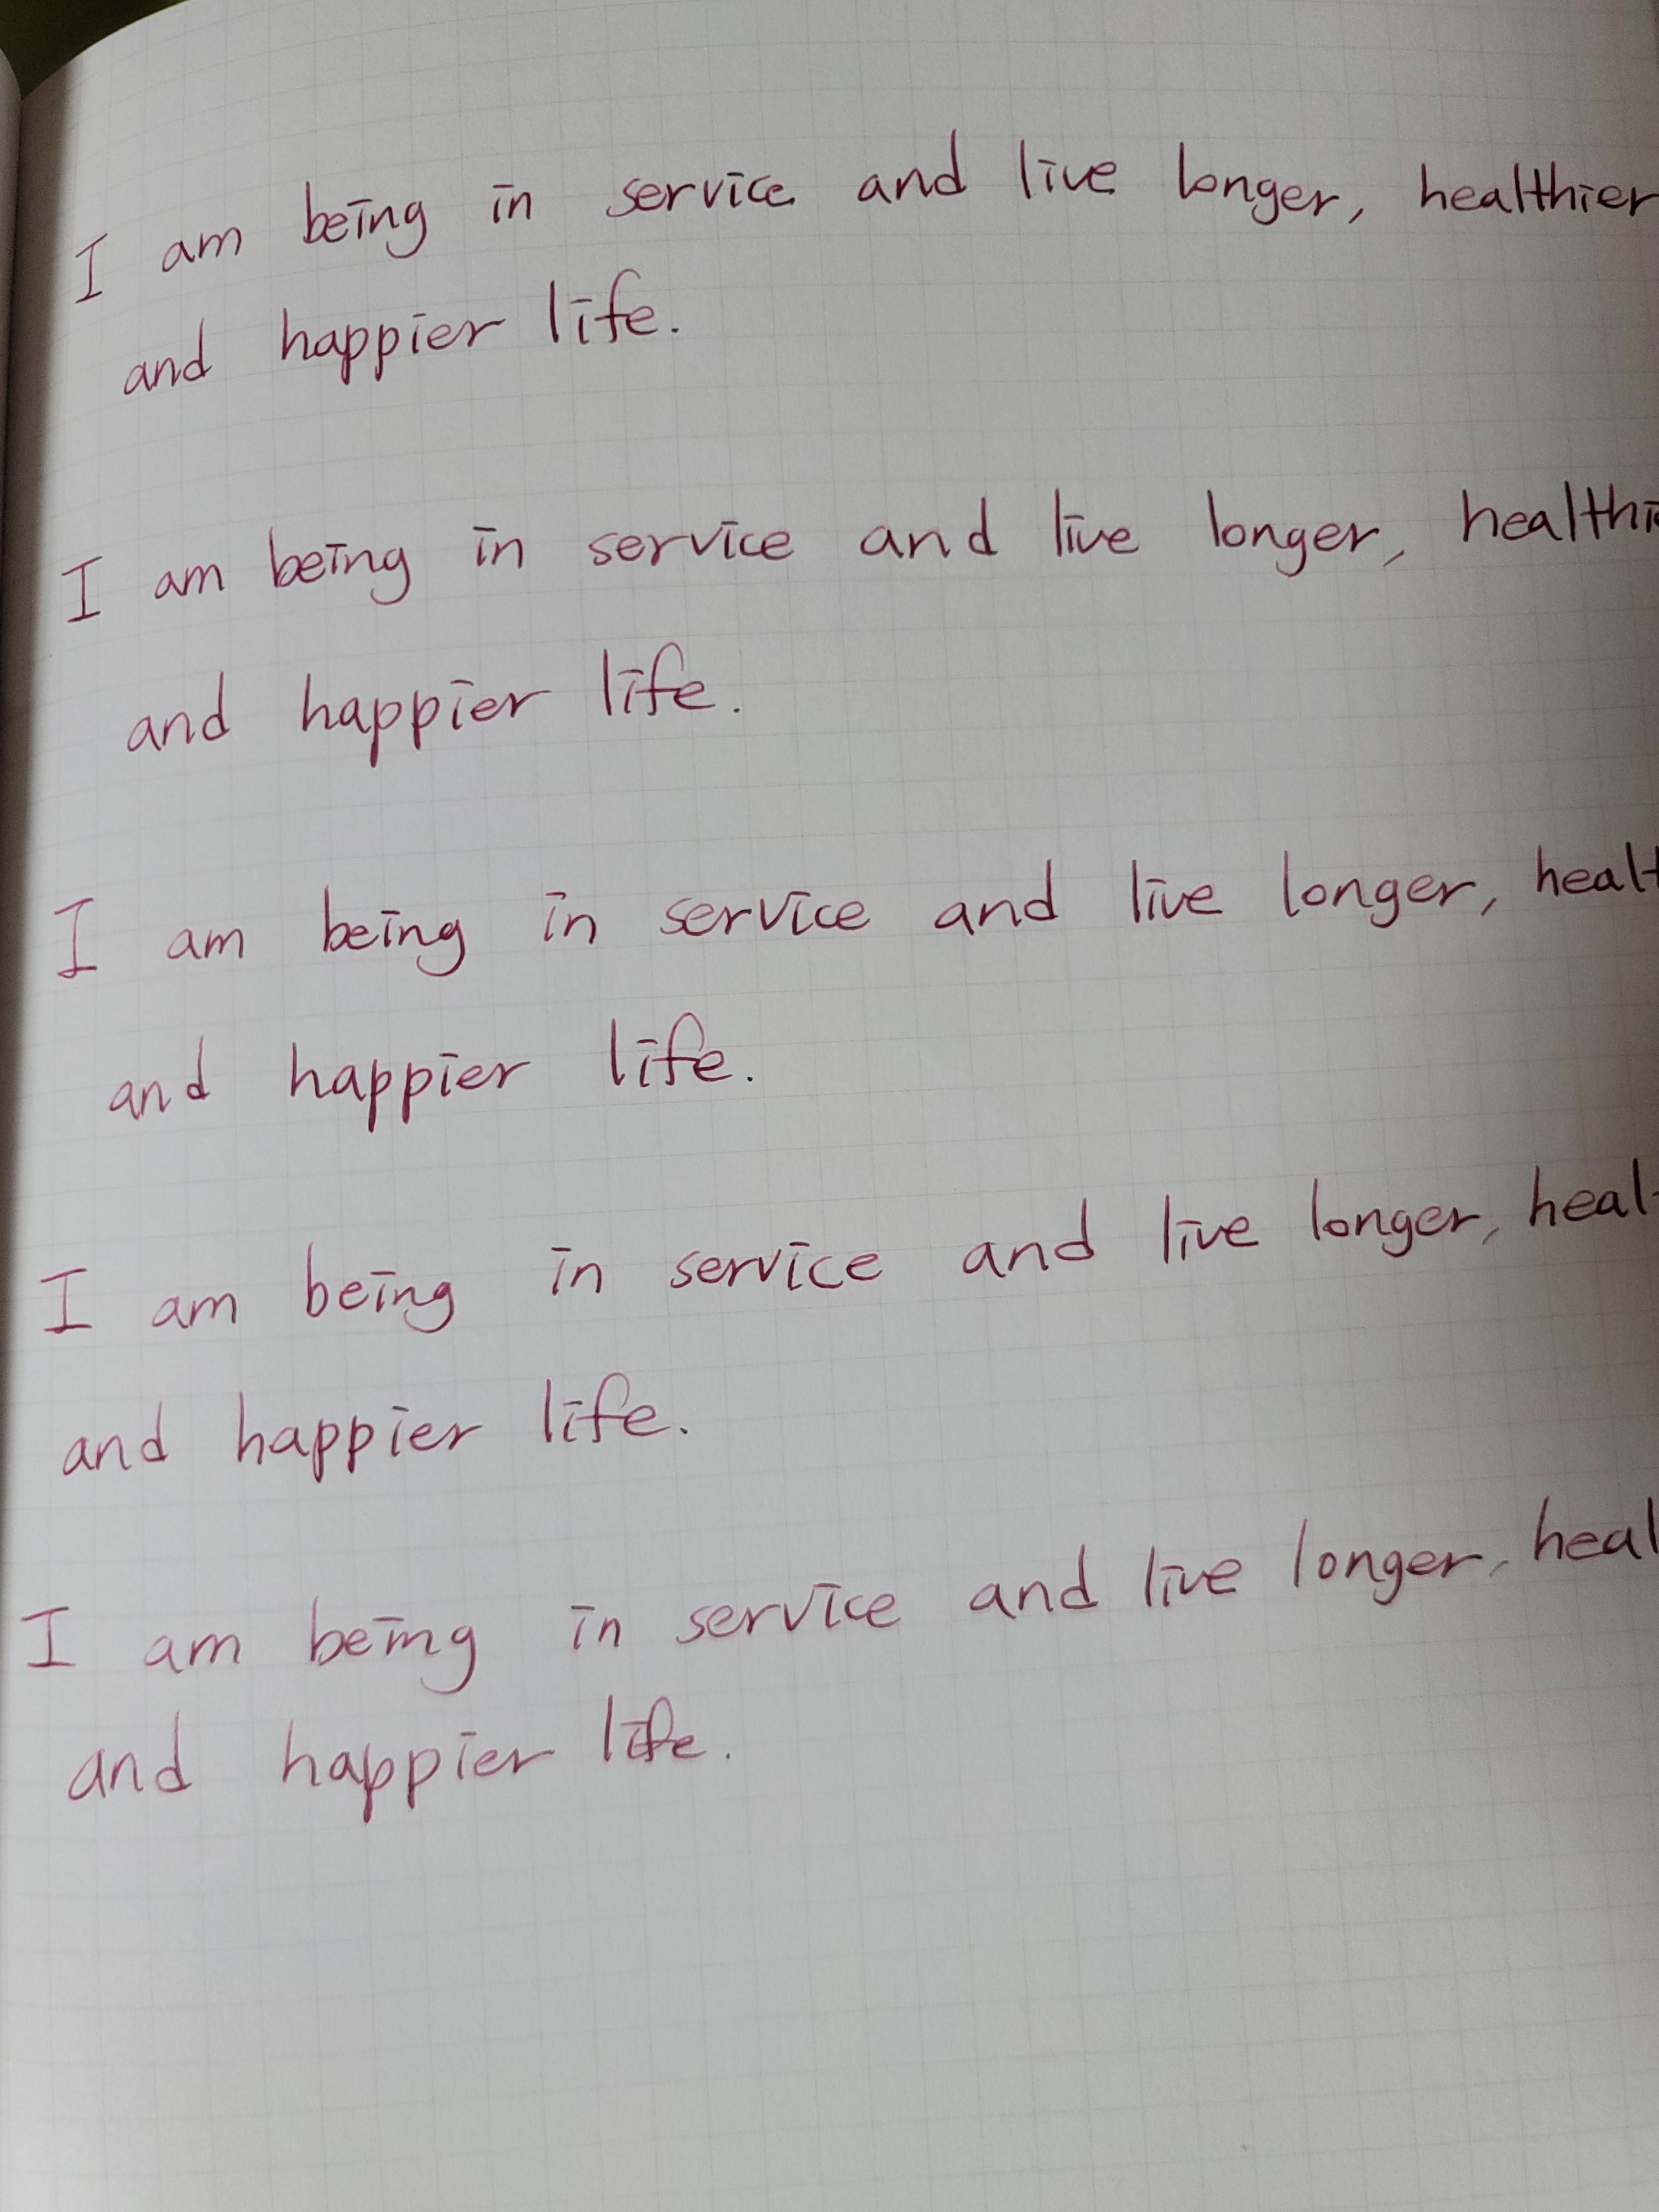 I am being in service and live longer, healthier
and happier life.
I am being in service and live longer,
and happier life.
I am being in service and live longer,
and happier life.
I am being in service and live longer,
and happier life.
I am being in service and live longer,
and happier life.